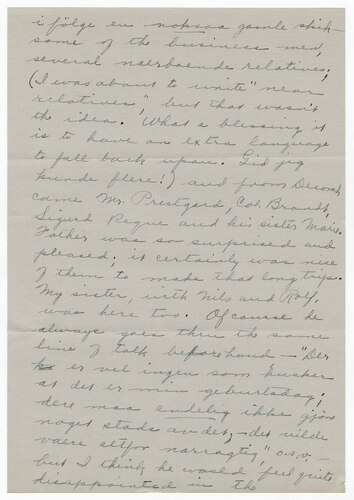 i følge en noksaa gamle skik-
some of the business men,
several naerboende relatives;
(I was about to write "near
relatives", but that wasn't
the idea. What a blessing it
is to have an extra language
to fall back upon. Gid jeg
kunde flere!) and from Decorah
came Mr. Prestgard, Col. Brandt,
Sigurd Reque and his sister Marie.
Father was so surprised and
pleased; it certainly was nice
of them to make that long trip.
My sister, with Nils and Rolf,
was here too. Of course he
always goes thru the same
line of talk beforehand — "Der
er vel ingen som husker
at det er min geburtsdag;
dere maa endelig ikke gjør
noget stads av det, - det vilde
vaere altfor narragtig", o.s.v. -
but I think he would feel quite
disappointed in the